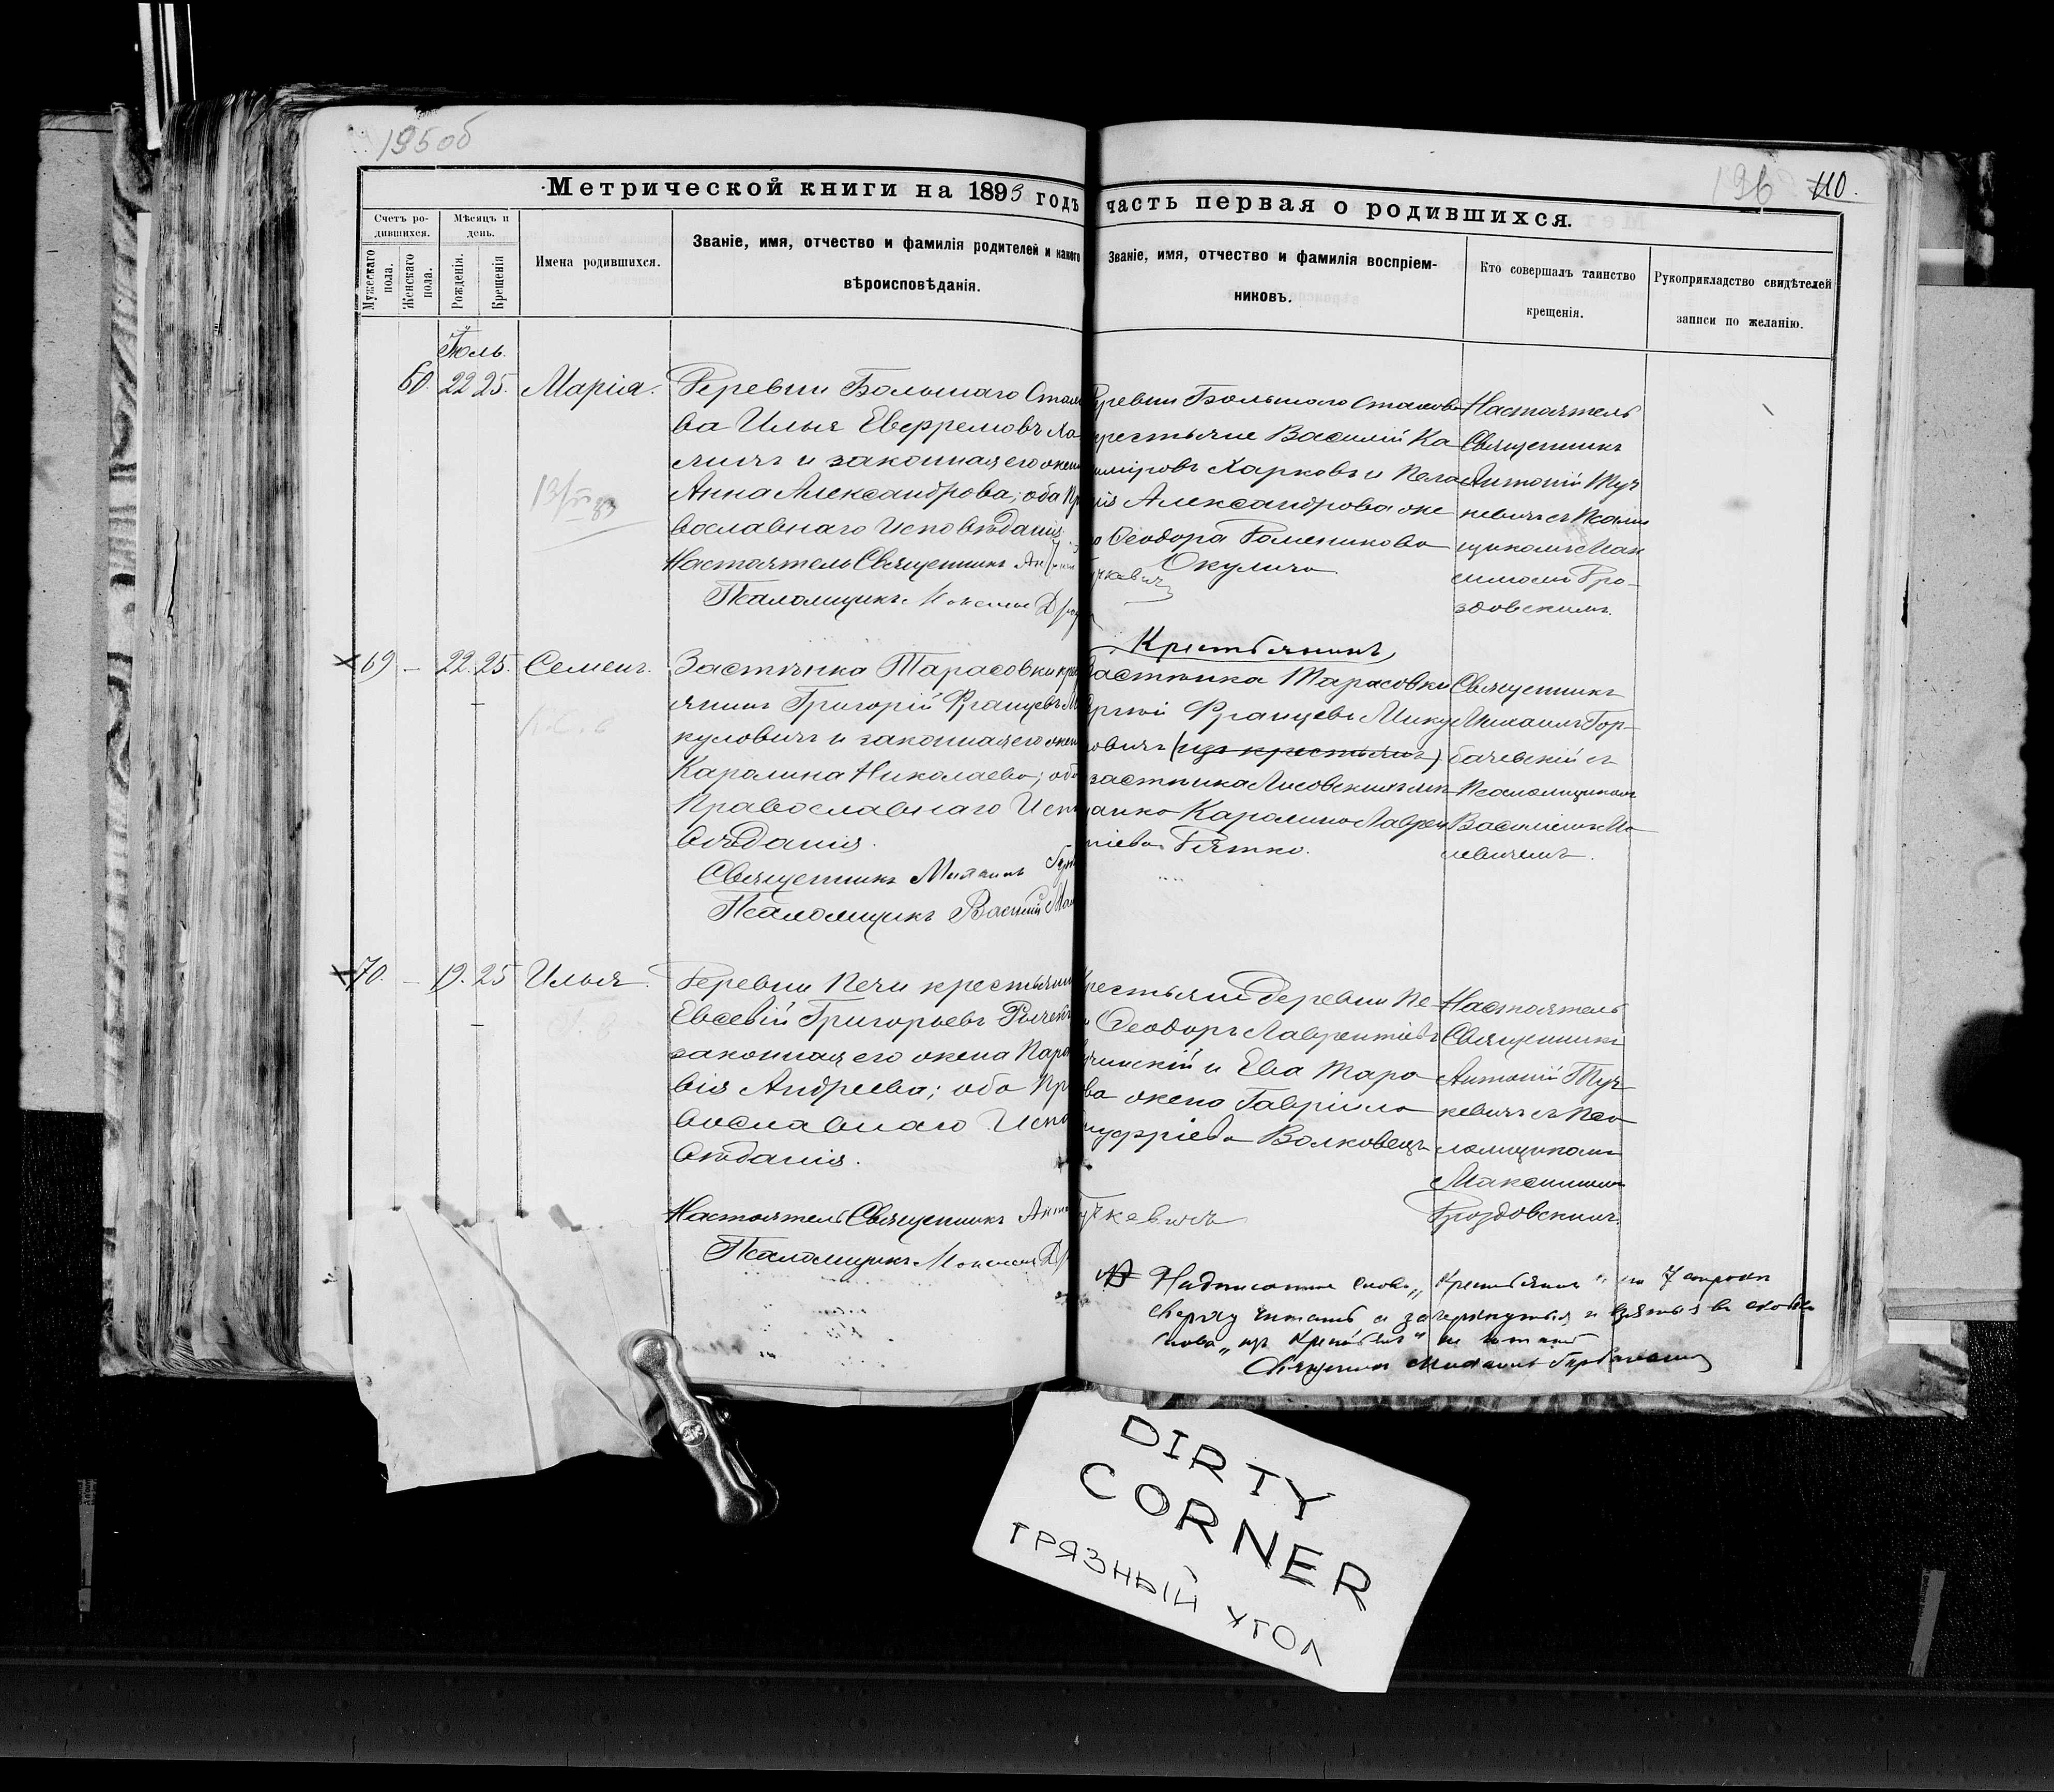 195об
196 110.
Метрической книги на 1893 годъ часть первая о родившихся.
Счетъ ро-
дившихся.
Мужескаго
пола.
Женскаго
пола.
Мѣсяцъ и
день.
Рожденія.
Крещенія
Имена родившихся.
Званіе, имя, отчество и фамилія родителей и какого
вѣроисповѣданія.
Званіе, имя, отчество и фамилія воспріем-
никовъ.
Кто совершалъ таинство
крещенія.
Рукоприкладство свидѣтелей
записи по желанію.
Іюль.
60. 22 25. Марія.
Деревни Большаго Стахо
ва Илья Евфремовъ Ха
и законная его жен
Анна Александрова; оба Пр
вославнаго Исповѣданія.
Настоятель Священникъ Ан
Псаломщикъ Максимъ Дроз
деревни Большого Стахова
крестьяне Василій Ка
имировъ Харковъ и Пела
ія Александрова же
а Ѳеодора
Окулича
чкевичъ
Настоятель
Священникъ
Антоній Туч
кевичъ съ Псалом
щикомъ Мак
симомъ Дро-
здовскимъ.
69 — 22. 25. Семенъ.
Застѣнка Тарасовки кре
янинъ Григорій Францевъ М
куловичъ и законная его жен
Каролина Николаева; об
Православнаго Исп
вѣданія.
Священникъ Михаилъ Гор
Псаломщикъ Василій Ма
Крестьянинъ
застѣнка Тарасовки
Францевъ Мику
овичъ (изъ крестьянъ)
застѣнка
Каролина Лаврен
тіева Пятко.
Священникъ
Михаилъ Гор-
бачевскій съ
Псаломщикомъ
Василіемъ Ма
цевичемъ.
70. — 19. 25 Илья.
Деревни Печи крестьянин
Евсевій Григорьевъ
законная его жена Пара
вія Андреева; оба Пр
вославнаго Испо
вѣданія.
Настоятель Священникъ Анто
Псаломщикъ Максимъ Др
крестьяне деревни Пе
и Ѳеодоръ Лаврентіевъ
чинскій и Ева Тара
ва жена Гавріила
нуфріева Волковецъ
чкевичъ
Настоятель
Священникъ
Антоній Туч-
кевичъ съ Пса
ломщикомъ
Максимомъ
Дроздовскимъ.
Надписанное слово „Крестьянинъ" на 7 строкѣ
сверху читать, а зачеркнутыя и взятыя въ скобки
слова „изъ крестьянъ" не читать
Священникъ Михаилъ Горбачевскій
DIRTY
CORNER
ГРЯЗНЫЙ УГОЛ